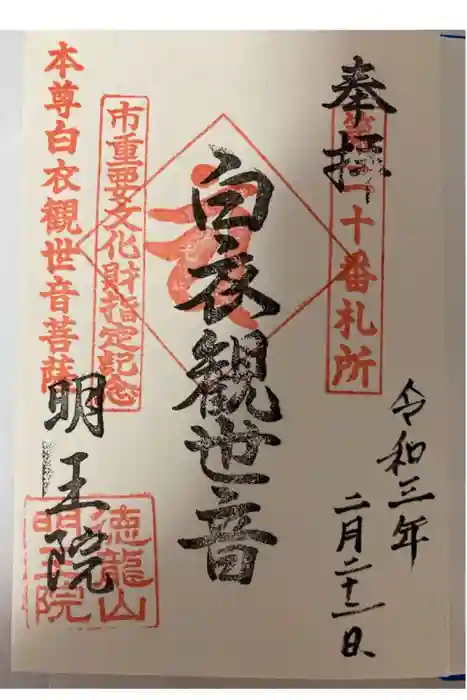 奉拝
十番札所
令和三年
二月二十二日
白衣観世音
市重要文化財指定記念
本尊白衣観世音菩薩
明王院
徳龍山
明王院